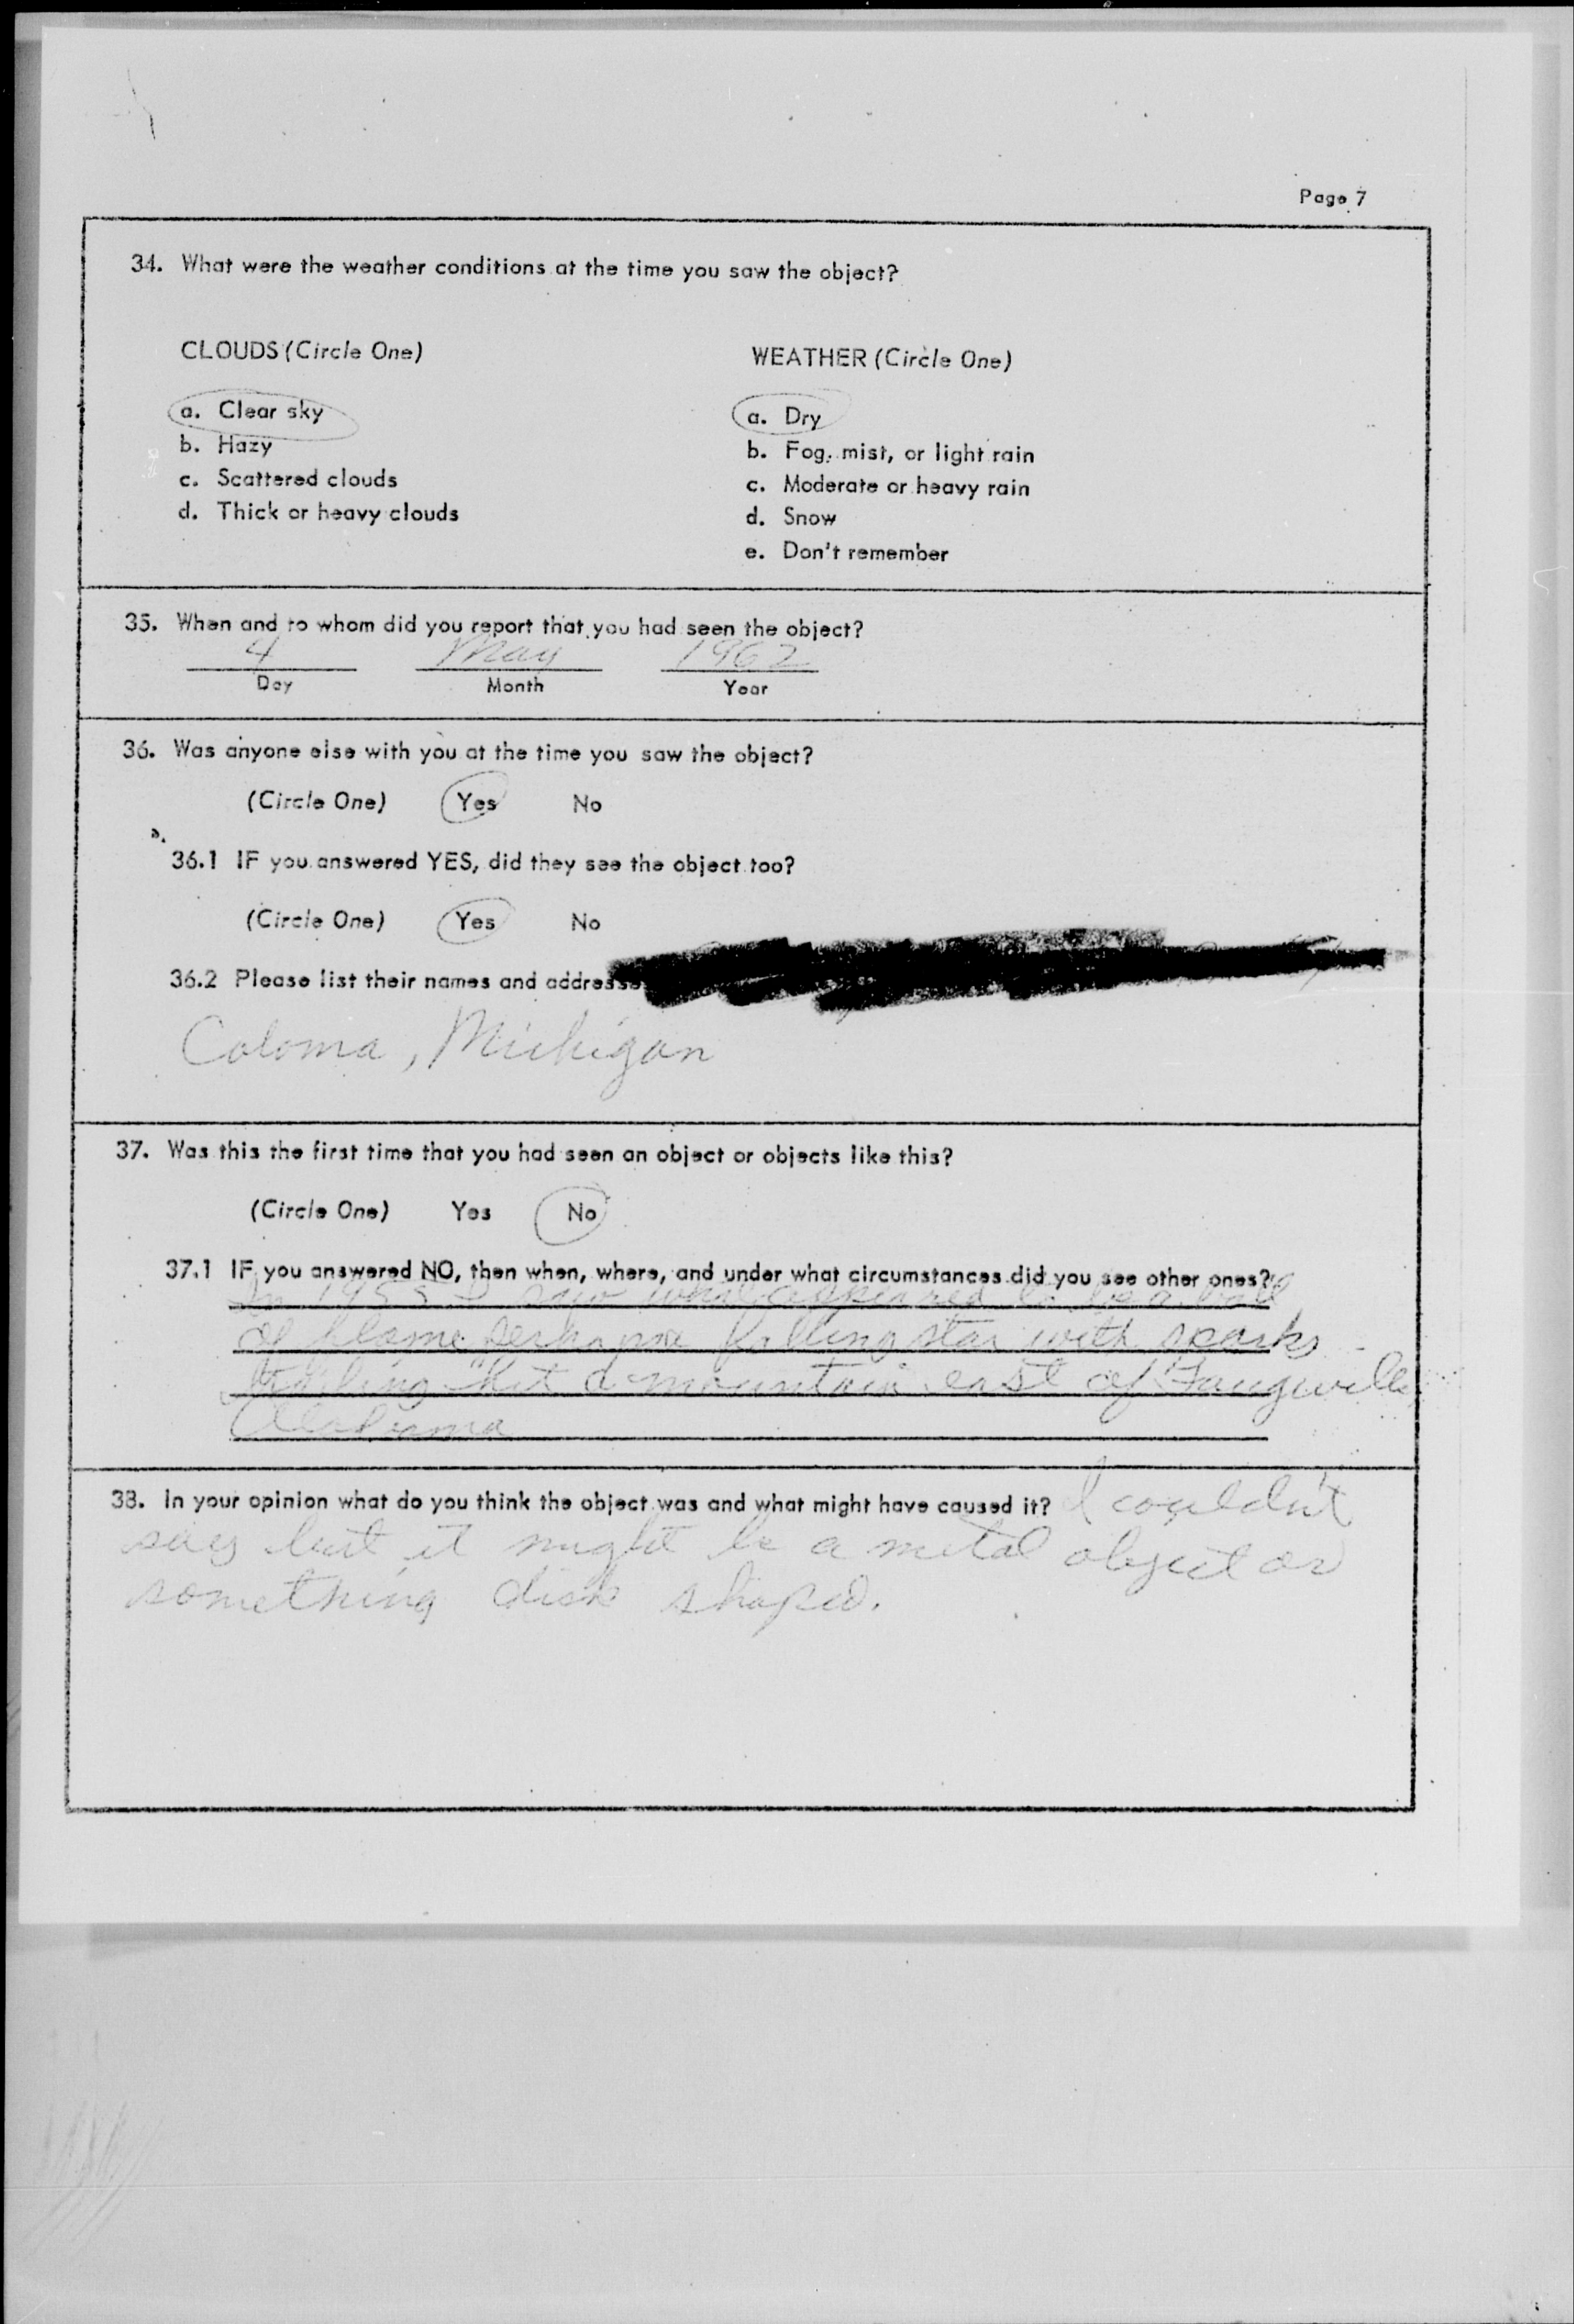 Page 7
34. What were the weather conditions at the time you saw the object?
CLOUDS (Circle One)
a. Clear sky
b. Hazy
c. Scattered clouds
d. Thick or heavy clouds
WEATHER (Circle One)
a. Dry
b. Fog, mist, or light rain
c. Moderate or heavy rain
d. Snow
e. Don't remember
35. When and to whom did you report that you had seen the object?
4 May 1962
Day Month Year
36. Was anyone else with you at the time you saw the object?
(Circle One) Yes No
36.1 IF you answered YES, did they see the object too?
(Circle One) Yes No
36.2 Please list their names and addresse
Coloma, Michigan
37. Was this the first time that you had seen an object or objects like this?
(Circle One) Yes No
37.1 IF you answered NO, then when, where, and under what circumstances did you see other ones?
In 1955 I saw what appeared to be a ball
of flame falling star with sparks
hit a mountain east of
Alabama
38. In your opinion what do you think the object was and what might have caused it? I couldn't
say but it might be a metal object or
something disk shaped.